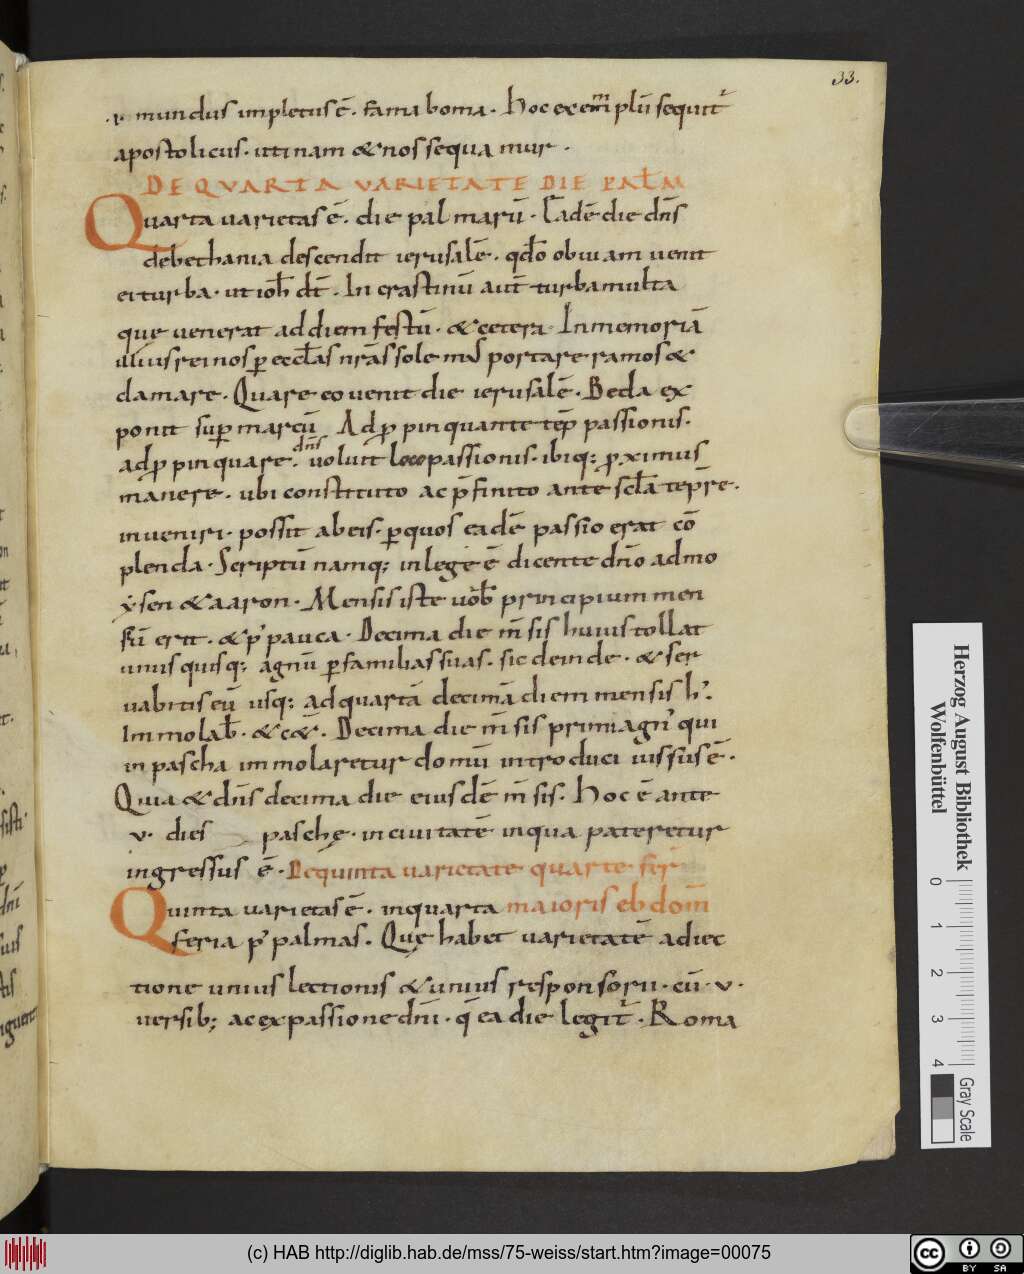 33.
mundus impletus ē. fama bona. hoc exem̄plū sequit᷑
apostolicus. utinam & nos sequamur.
DE QVARTA VARIETATE DIE PAL̄M
Quarta varietas ē. die palmarū. Eadē die dn̄s
de bethania descendit ierusalē. qđo obviam venit
ei turba. ut ioh̄ dt̄. In crastinū aut̄ turba multa
que venerat ad diem festū. & cetera. In memoriā
illius rei nos ꝑ eccłas nr̄as solemus portare ramos &
clamare. Quare eo venit die ierusalē. Beda ex
ponit suꝑ marcū. Adꝓpinquante tēp passionis.
adꝓpinquare dn̄s voluit loco passionis. ibiq; ꝓximus
manere. ubi constituto ac p̄finito ante scła tēpr̄e.
inveniri possit ab eis. ꝑ quos eadē passio erat cō
plenda. Scriptū namq; in lege ē dicente dn̄o ad mo
ysen & aaron. Mensis iste vob̄ principium men
siū erit. & p᷒ pauca. Decima die m̄sis huius tollat
unusquisq; agnū ꝑ familias suas. sic deinde. & ser
uabitis eū usq; ad quartā decimā diem mensis h᷒.
Immolab̄. & c&̄. Decima die m̄sis primi agn᷒ qui
in pascha immolaretur domū introduci iussus ē.
Quia & dn̄s decima die eiusdē m̄sis. hoc ē ante
v. dies pasche. in civitatē in qua pateretur
ingressus ē. De quinta varietate quarte fer̄
Quinta varietas ē. in quarta maioris ebdom̄
feria p᷒ palmas. Que habet varietatē adiec
tione unius lectionis & unius responsorii. cū. v.
versib; ac ex passione dn̄i. q̄ ea die legit᷑. Roma
Herzog August Bibliothek
Wolfenbüttel
0 1 2 3 4
Gray Scale
(c) HAB http://diglib.hab.de/mss/75-weiss/start.htm?image=00075
cc BY SA